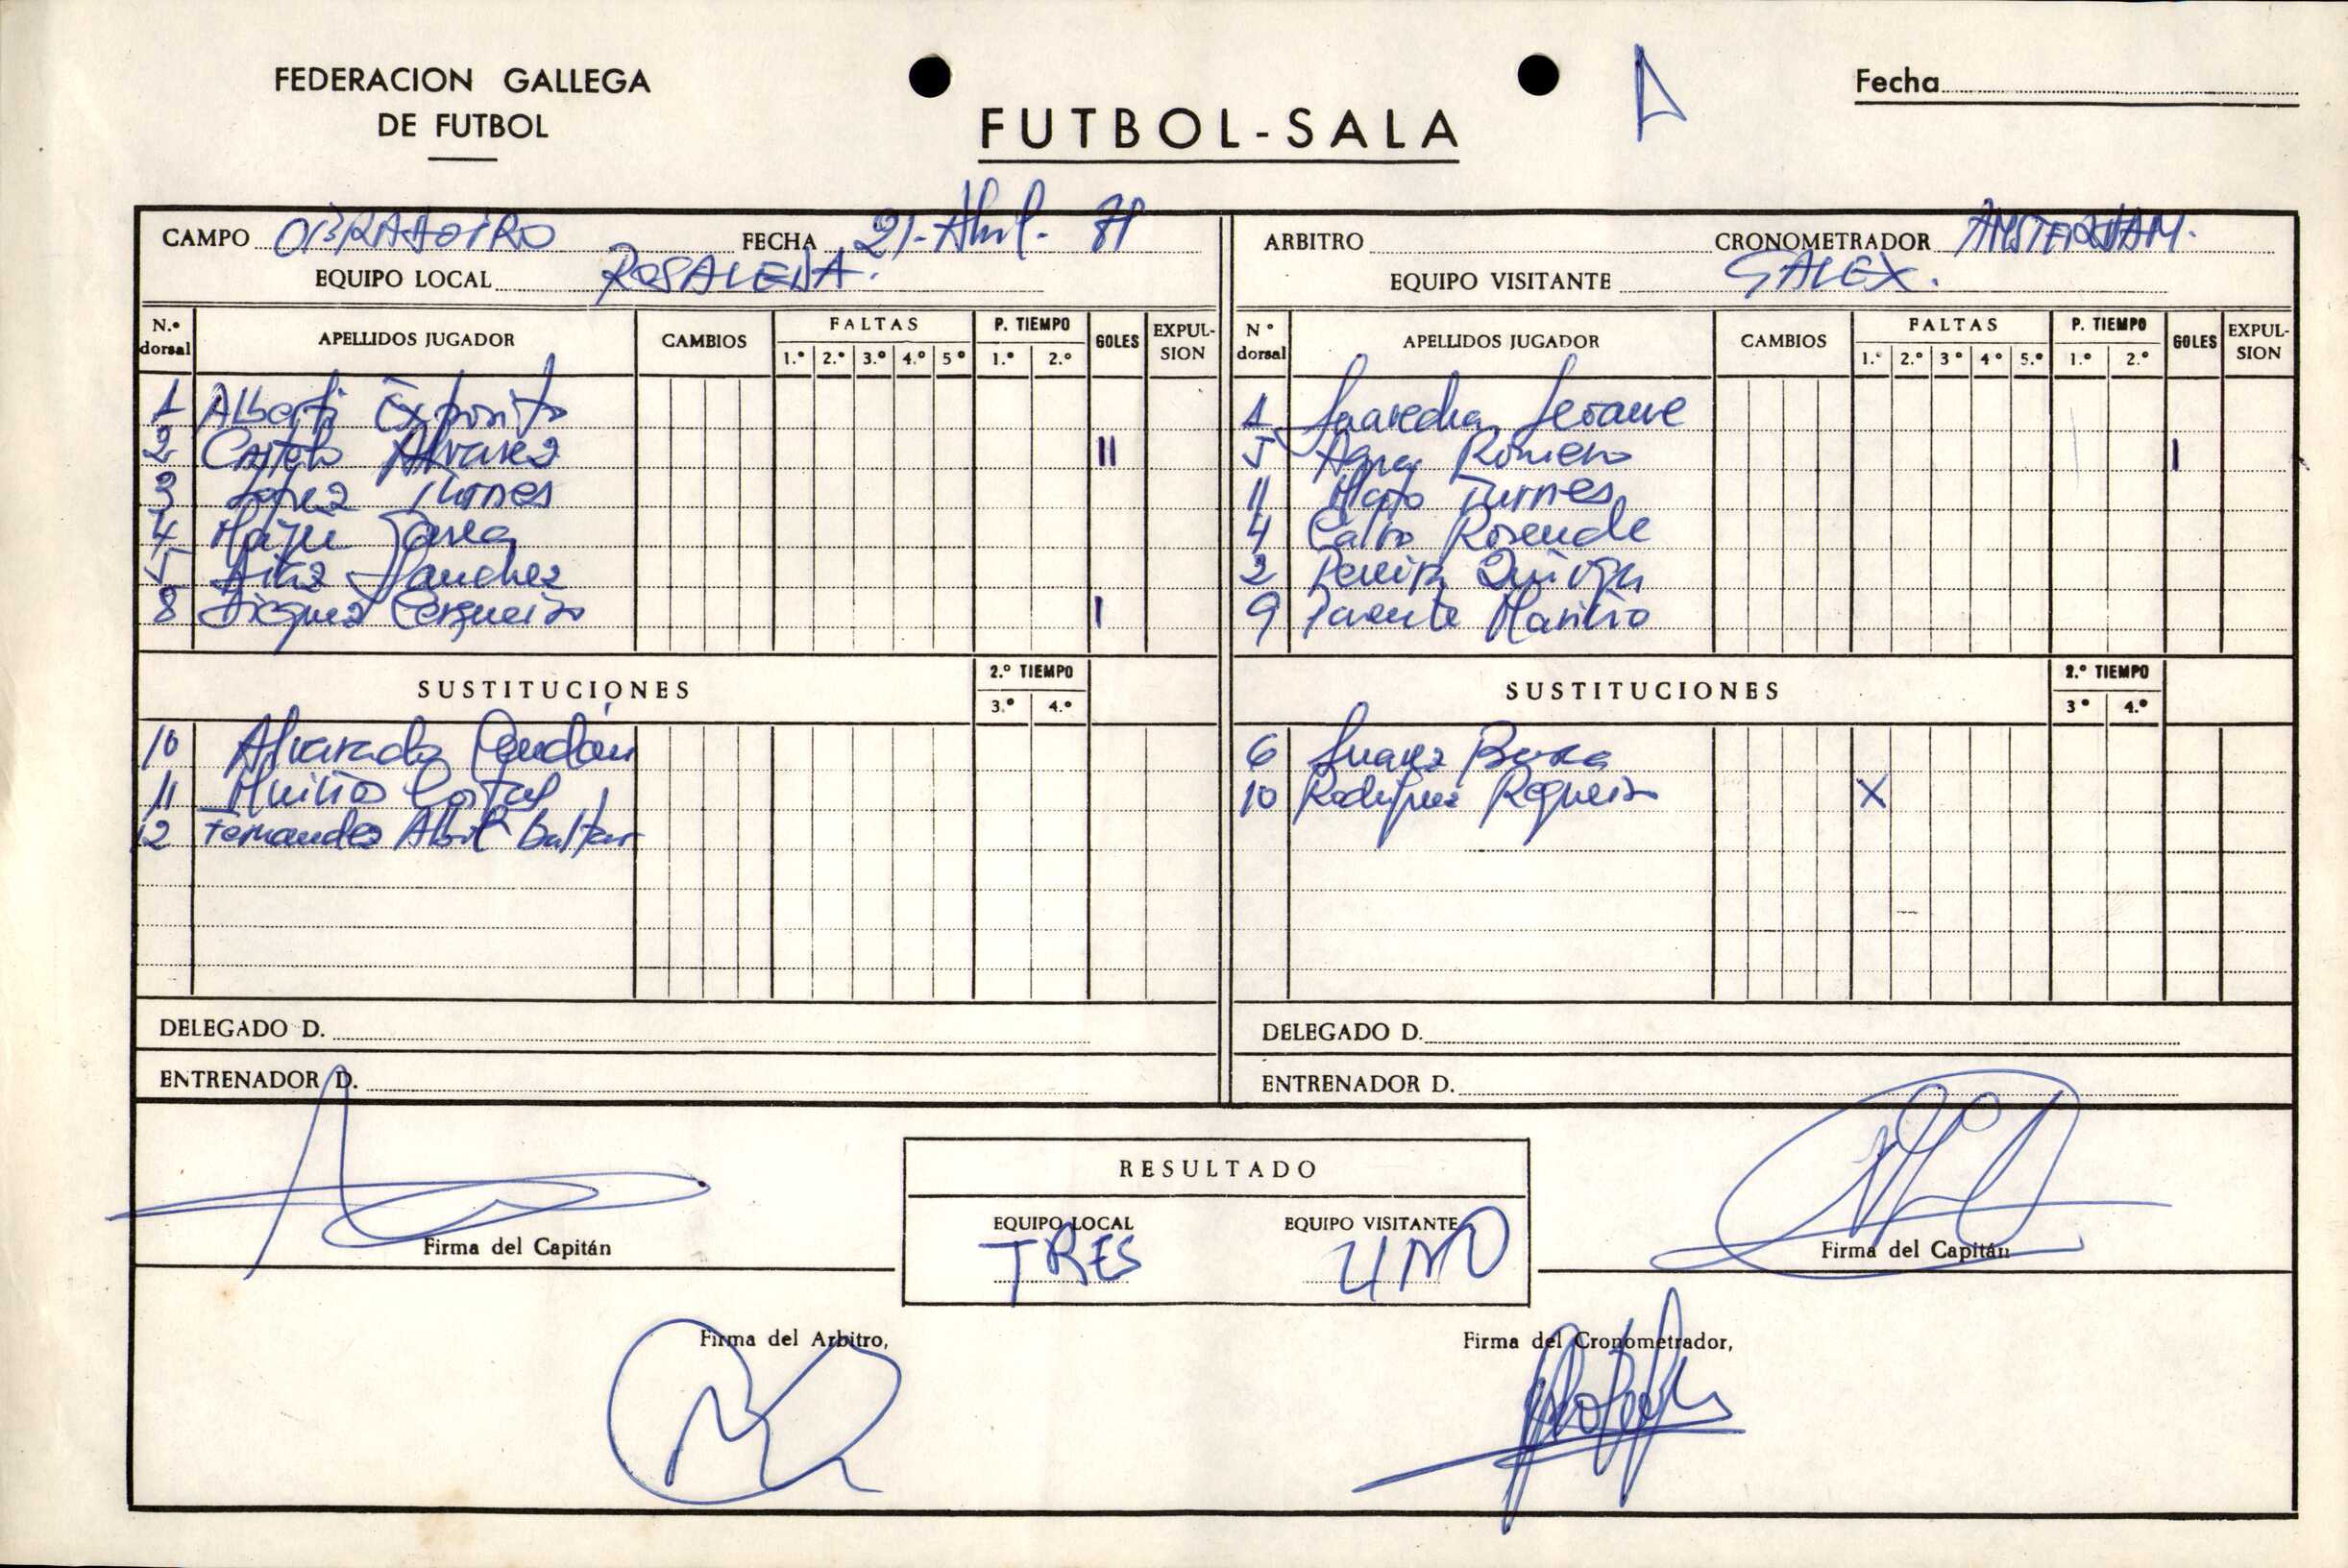 FEDERACION GALLEGA
DE FUTBOL
FUTBOL-SALA
Fecha
CAMPO OBRADOIRO FECHA 21-Abril-
EQUIPO LOCAL ROSALEDA.
N.º dorsal APELLIDOS JUGADOR CAMBIOS FALTAS 1.º 2.º 3.º 4.º 5º P. TIEMPO 1.º 2.º GOLES EXPULSION
1 Alberti Exposito
2 Castelo Alvarez II
3 Lopez Turnes
4
5 Diaz Sanchez
8 Cerqueiro I
SUSTITUCIONES 2.º TIEMPO 3.º 4.º
10 Alvarado
11 Muiños
12 Fernandez Abril Baltar
DELEGADO D.
ENTRENADOR D.
ARBITRO CRONOMETRADOR AMSTERDAM.
EQUIPO VISITANTE GALEX.
Nº dorsal APELLIDOS JUGADOR CAMBIOS FALTAS 1.º 2.º 3º 4º 5.º P. TIEMPO 1.º 2.º GOLES EXPULSION
1 Saavedra Seoane
5 Romero I
11 Mato Turnes
4 Calvo Rosende
2 Pereira
9 Parente Mariño
SUSTITUCIONES 2.º TIEMPO 3º 4.º
6 Suarez
10 Rodriguez Regueiro X
DELEGADO D.
ENTRENADOR D.
RESULTADO
EQUIPO LOCAL EQUIPO VISITANTE
TRES UNO
Firma del Capitán
Firma del Capitán
Firma del Arbitro,
Firma del Cronometrador,